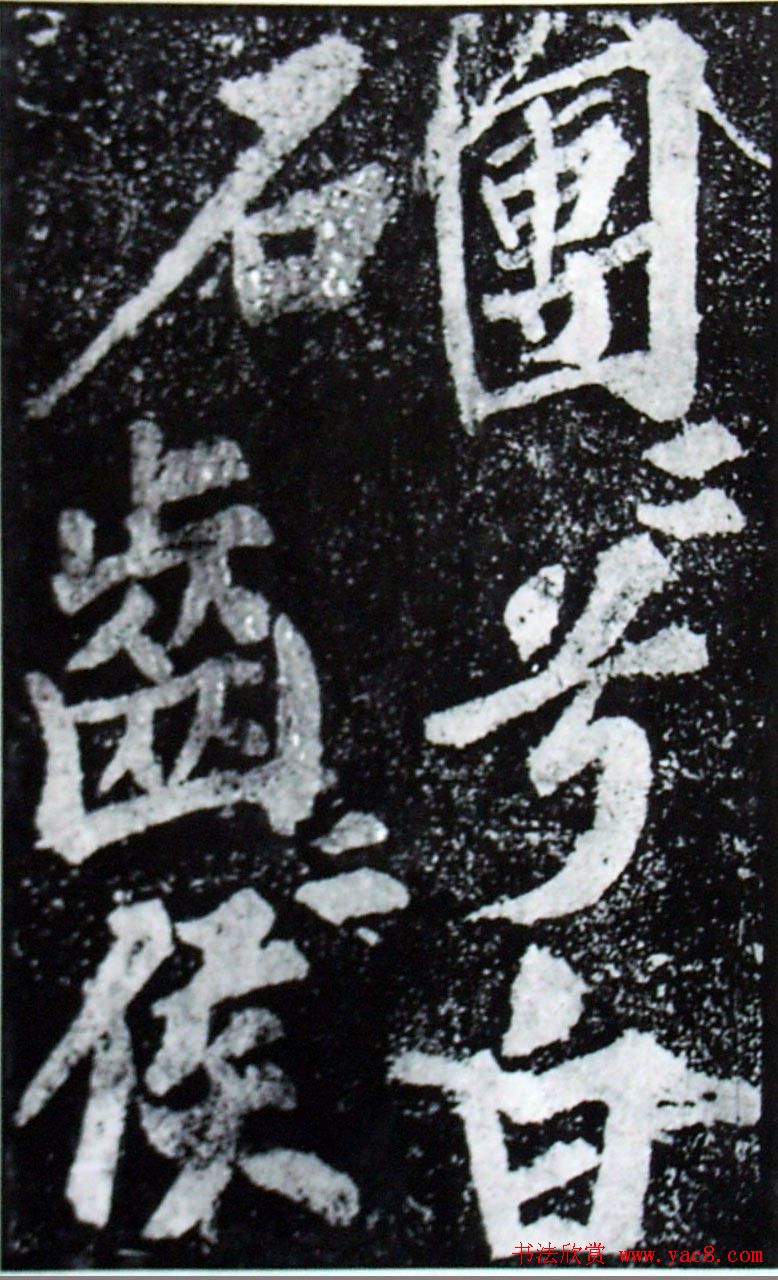 團〻兮白
石齒〻侯
书法欣赏 www.yac8.com